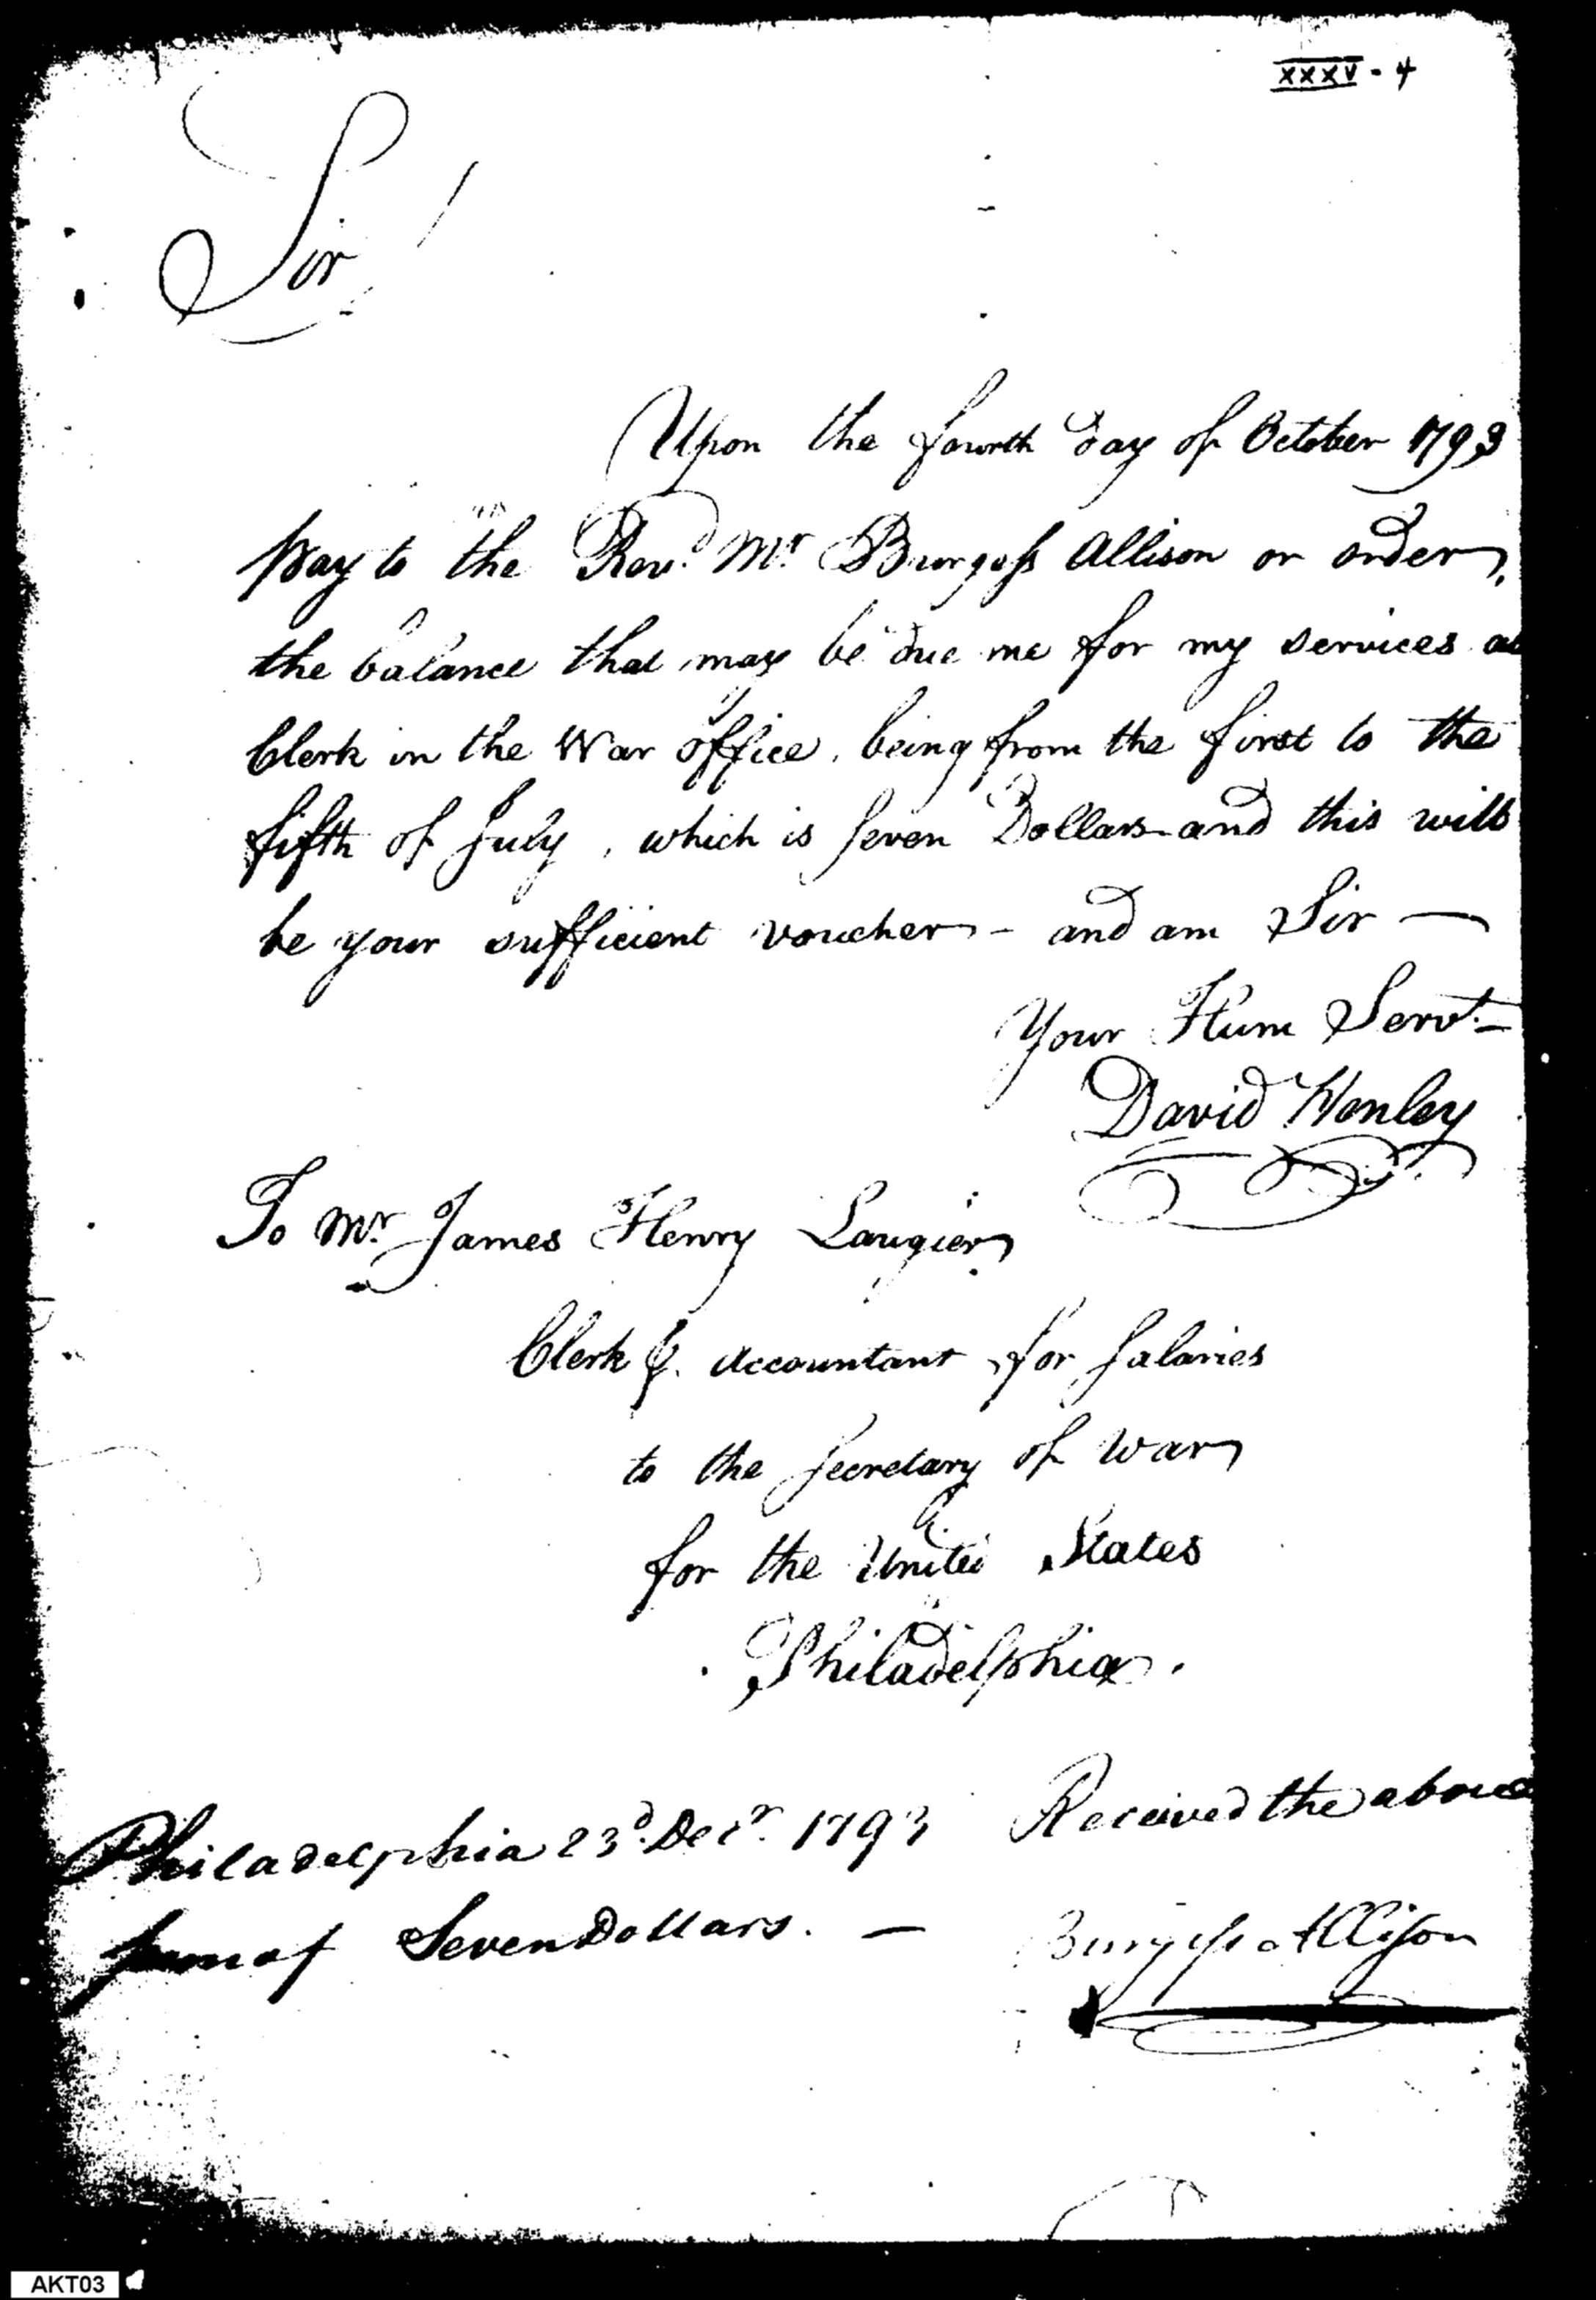 XXXV - 4
Sir!
Upon the fourth day of October 1793
Pay to the Revd. Mr. Burgess Allison or order,
the balance that may be due me for my services as
Clerk in the War office, being from the first to the
fifth of July, which is Seven Dollars and this will
be your sufficient voucher - and am Sir —
Your Hum Servt. —
David Henley
To Mr. James Henry Laugier
Clerk & Accountant for Salaries
to the Secretary of War
for the United States
Philadelphia.
Philadelphia 23d. Decr. 1793 Received the above
Sum of Seven Dollars. —
Burgess Allison
AKT03